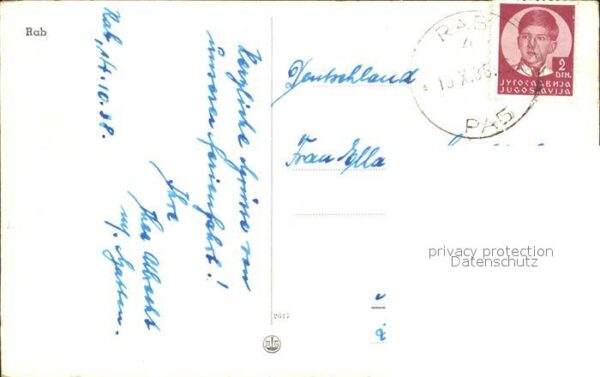 Rab
Rab, 14.10.38.
Herzliche Grüsse von
unserer Ferienfahrt!
Ihre
Thea Albrecht
u.
Deutschland
Frau Ella
RAB
РАБ
2
DIN.
ЈУГОСЛАВИЈА
JUGOSLAVIJA
privacy protection
Datenschutz
2617